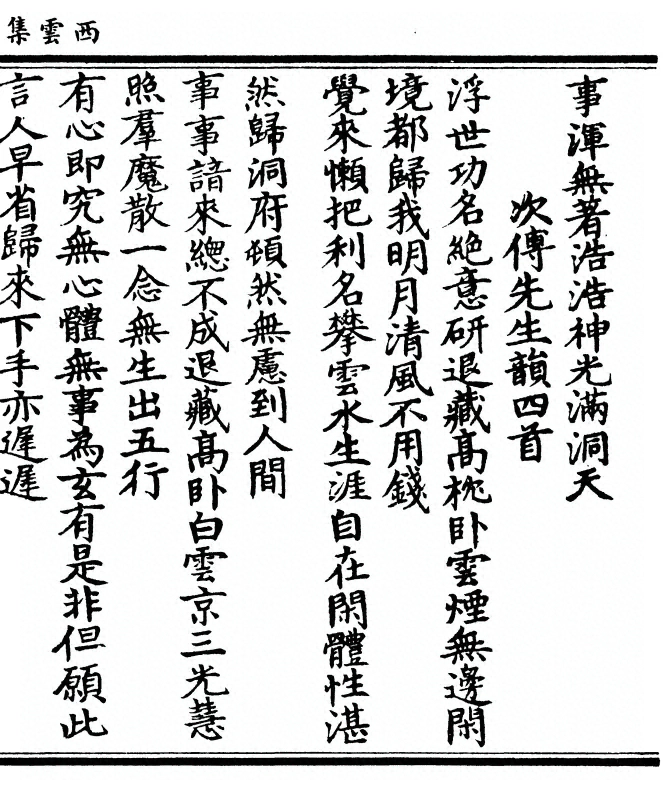 西雲集
事渾無著浩浩神光滿洞天
次傅先生韻四首
浮世功名絶意研退藏高枕卧雲煙無邊閑
境都歸我明月清風不用錢
覺來懶把利名攀雲水生涯自在閑體性湛
然歸洞府頓然無慮到人間
事事諳來總不成退藏高卧白雲京三光慧
照羣魔散一念無生出五行
有心即究無心體無事為玄有是非但願此
言人早省歸來下手亦遲遲